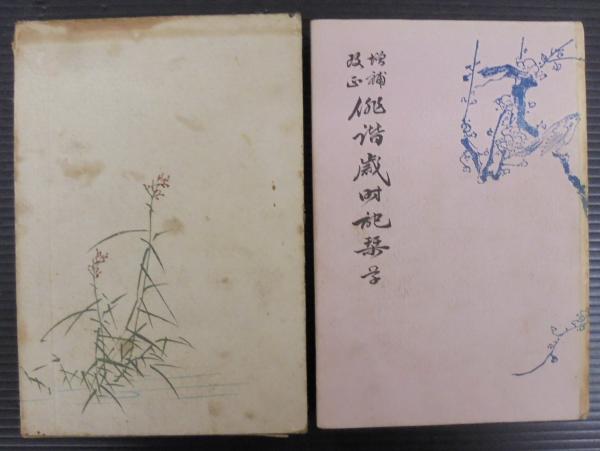 増補
改正
俳諧歳時記栞草